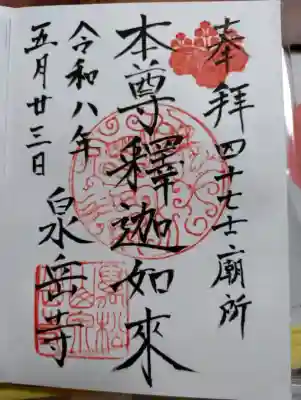 奉拝 四十七士廟所
本尊釋迦如来
令和八年
五月廿三日
泉岳寺
萬松